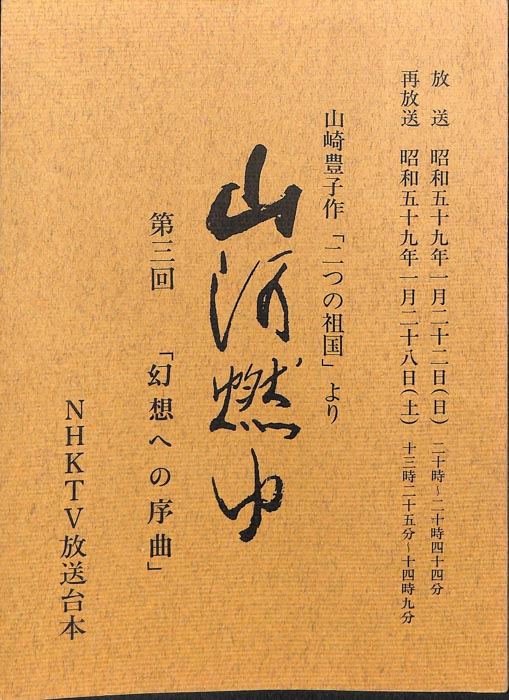 放送 昭和五十九年一月二十二日(日) 二十時～二十時四十四分
再放送 昭和五十九年一月二十八日(土) 十三時二十五分～十四時九分
山崎豊子作「二つの祖国」より
山河燃ゆ
第三回 「幻想への序曲」
NHKTV放送台本